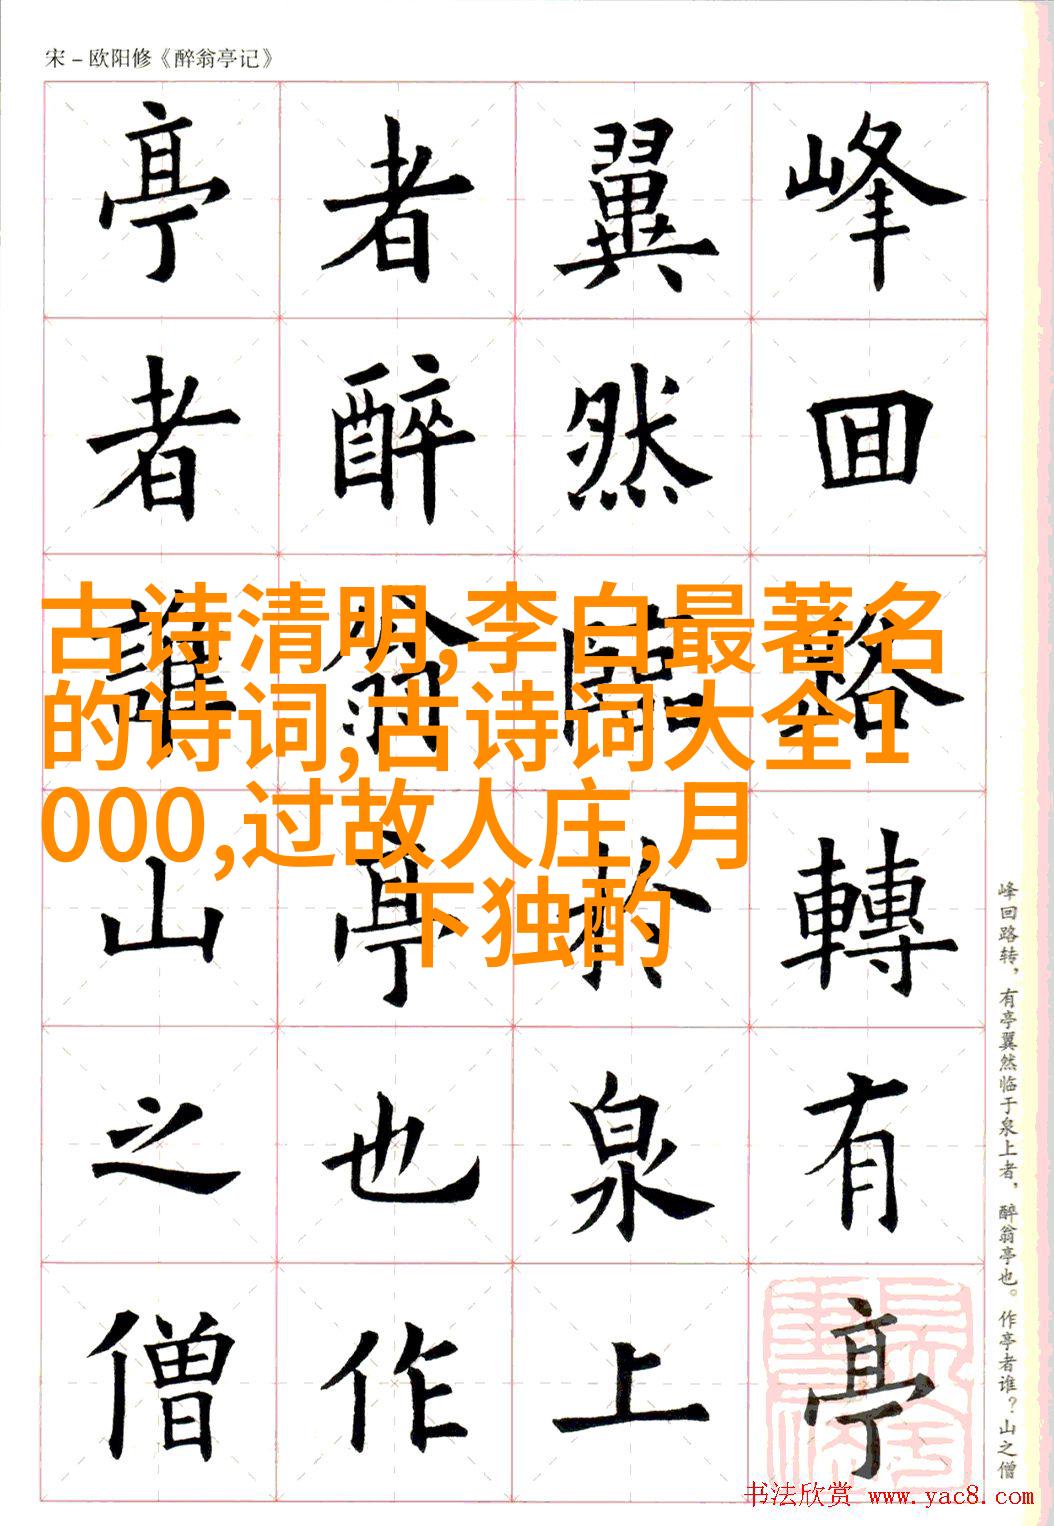 宋－欧阳修《醉翁亭记》
峰回路轉有亭
翼然臨於泉上
者醉翁亭也作
亭者誰山之僧
古诗清明,李白最著名
的诗词,古诗词大全1
000,过故人庄,月
下独酌
峰回路转，有亭翼然临于泉上者，醉翁亭也。作亭者谁？山之僧
书法欣赏 www.yac8.com